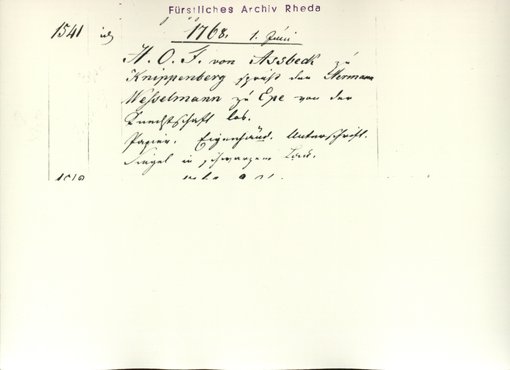 Fürstliches Archiv Rheda
1541 1768. 1. Juni
H. O. F. von Assbeck zu
Knippenberg spricht den Hermann
Wesselmann zu Epe von der
Knechtschaft los.
Papier. Eigenhänd. Unterschrift.
Siegel in schwarzem Lack.